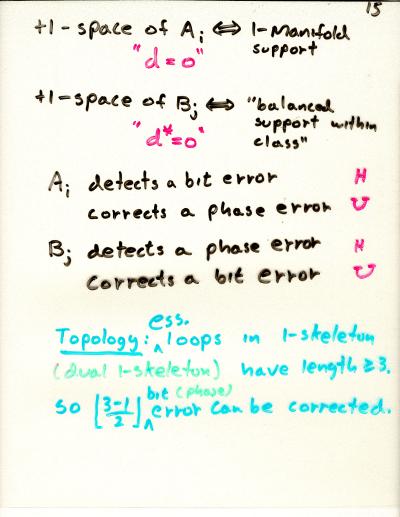 15
+1-space of Ai ⇔ 1-Manifold
support
"d=0"
+1-space of Bj ⇔ "balanced
support within
class"
"d*=0"
Ai detects a bit error
corrects a phase error
Bj detects a phase error
corrects a bit error
Topology: ess. loops in 1-skeleton
(dual 1-skeleton) have length ≥ 3.
so ⌊(3-1)/2⌋ bit (phase) error can be corrected.